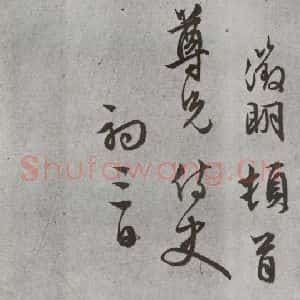 徵明頓首
尊兄侍史
初三日
Shufawang.cn